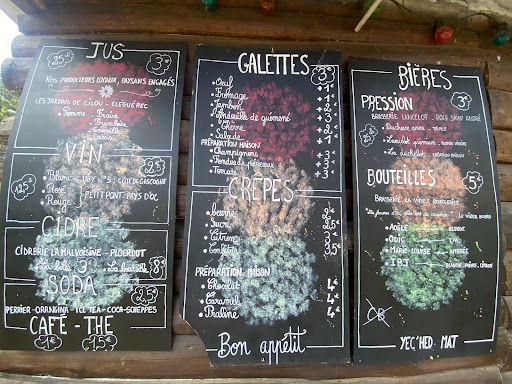 JUS
2€50
Nos producteurs locaux, paysans engagés
Les jardins de Cilou - Cléguérec
Pomme - Fraise
Framboise
Groseille
VIN
2€50
Blanc
Rosé
Rouge
Côte de Gascogne
Petit Pont, Pays d'Oc
CIDRE
Cidrerie La Malvoisine - Ploerdut
La bolée 3€
La bouteille 8€
SODA
2€50
Perrier - Orangina - Ice Tea - Coca - Schweppes
CAFÉ - THÉ
1€
1€50
GALETTES
Oeuf +1€
Fromage +1€
Jambon
Andouille de Guémené
Chèvre
Salade
Préparation maison
Champignons
Fondue de poireaux
Tomate
CRÊPES
Beurre
Sucre
Citron
Confiture
Préparation maison
Chocolat 4€
Caramel 4€
Praline 4€
Bon appétit
BIÈRES
PRESSION
3€
Brasserie Lancelot - Roc Saint André
Duchesse Anne - Triple
BOUTEILLES
Brasserie La Vieille Bourgeoise
Adèle Blonde
Odic
Marie-Louise Ambrée
IBJ Blanche, poivre, citron
CB
YEC'HED MAT